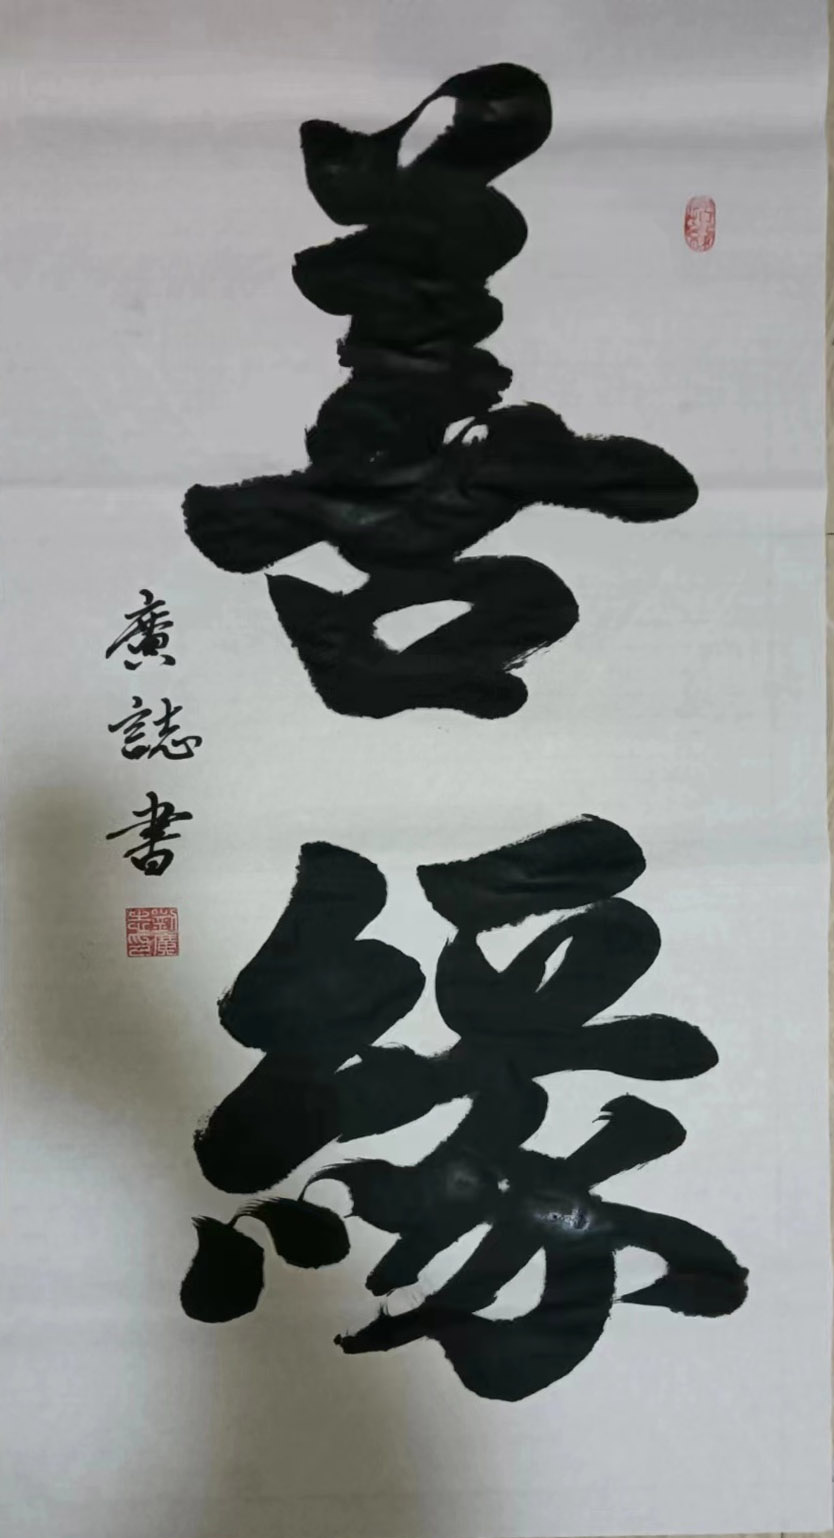 善緣
廣誌書